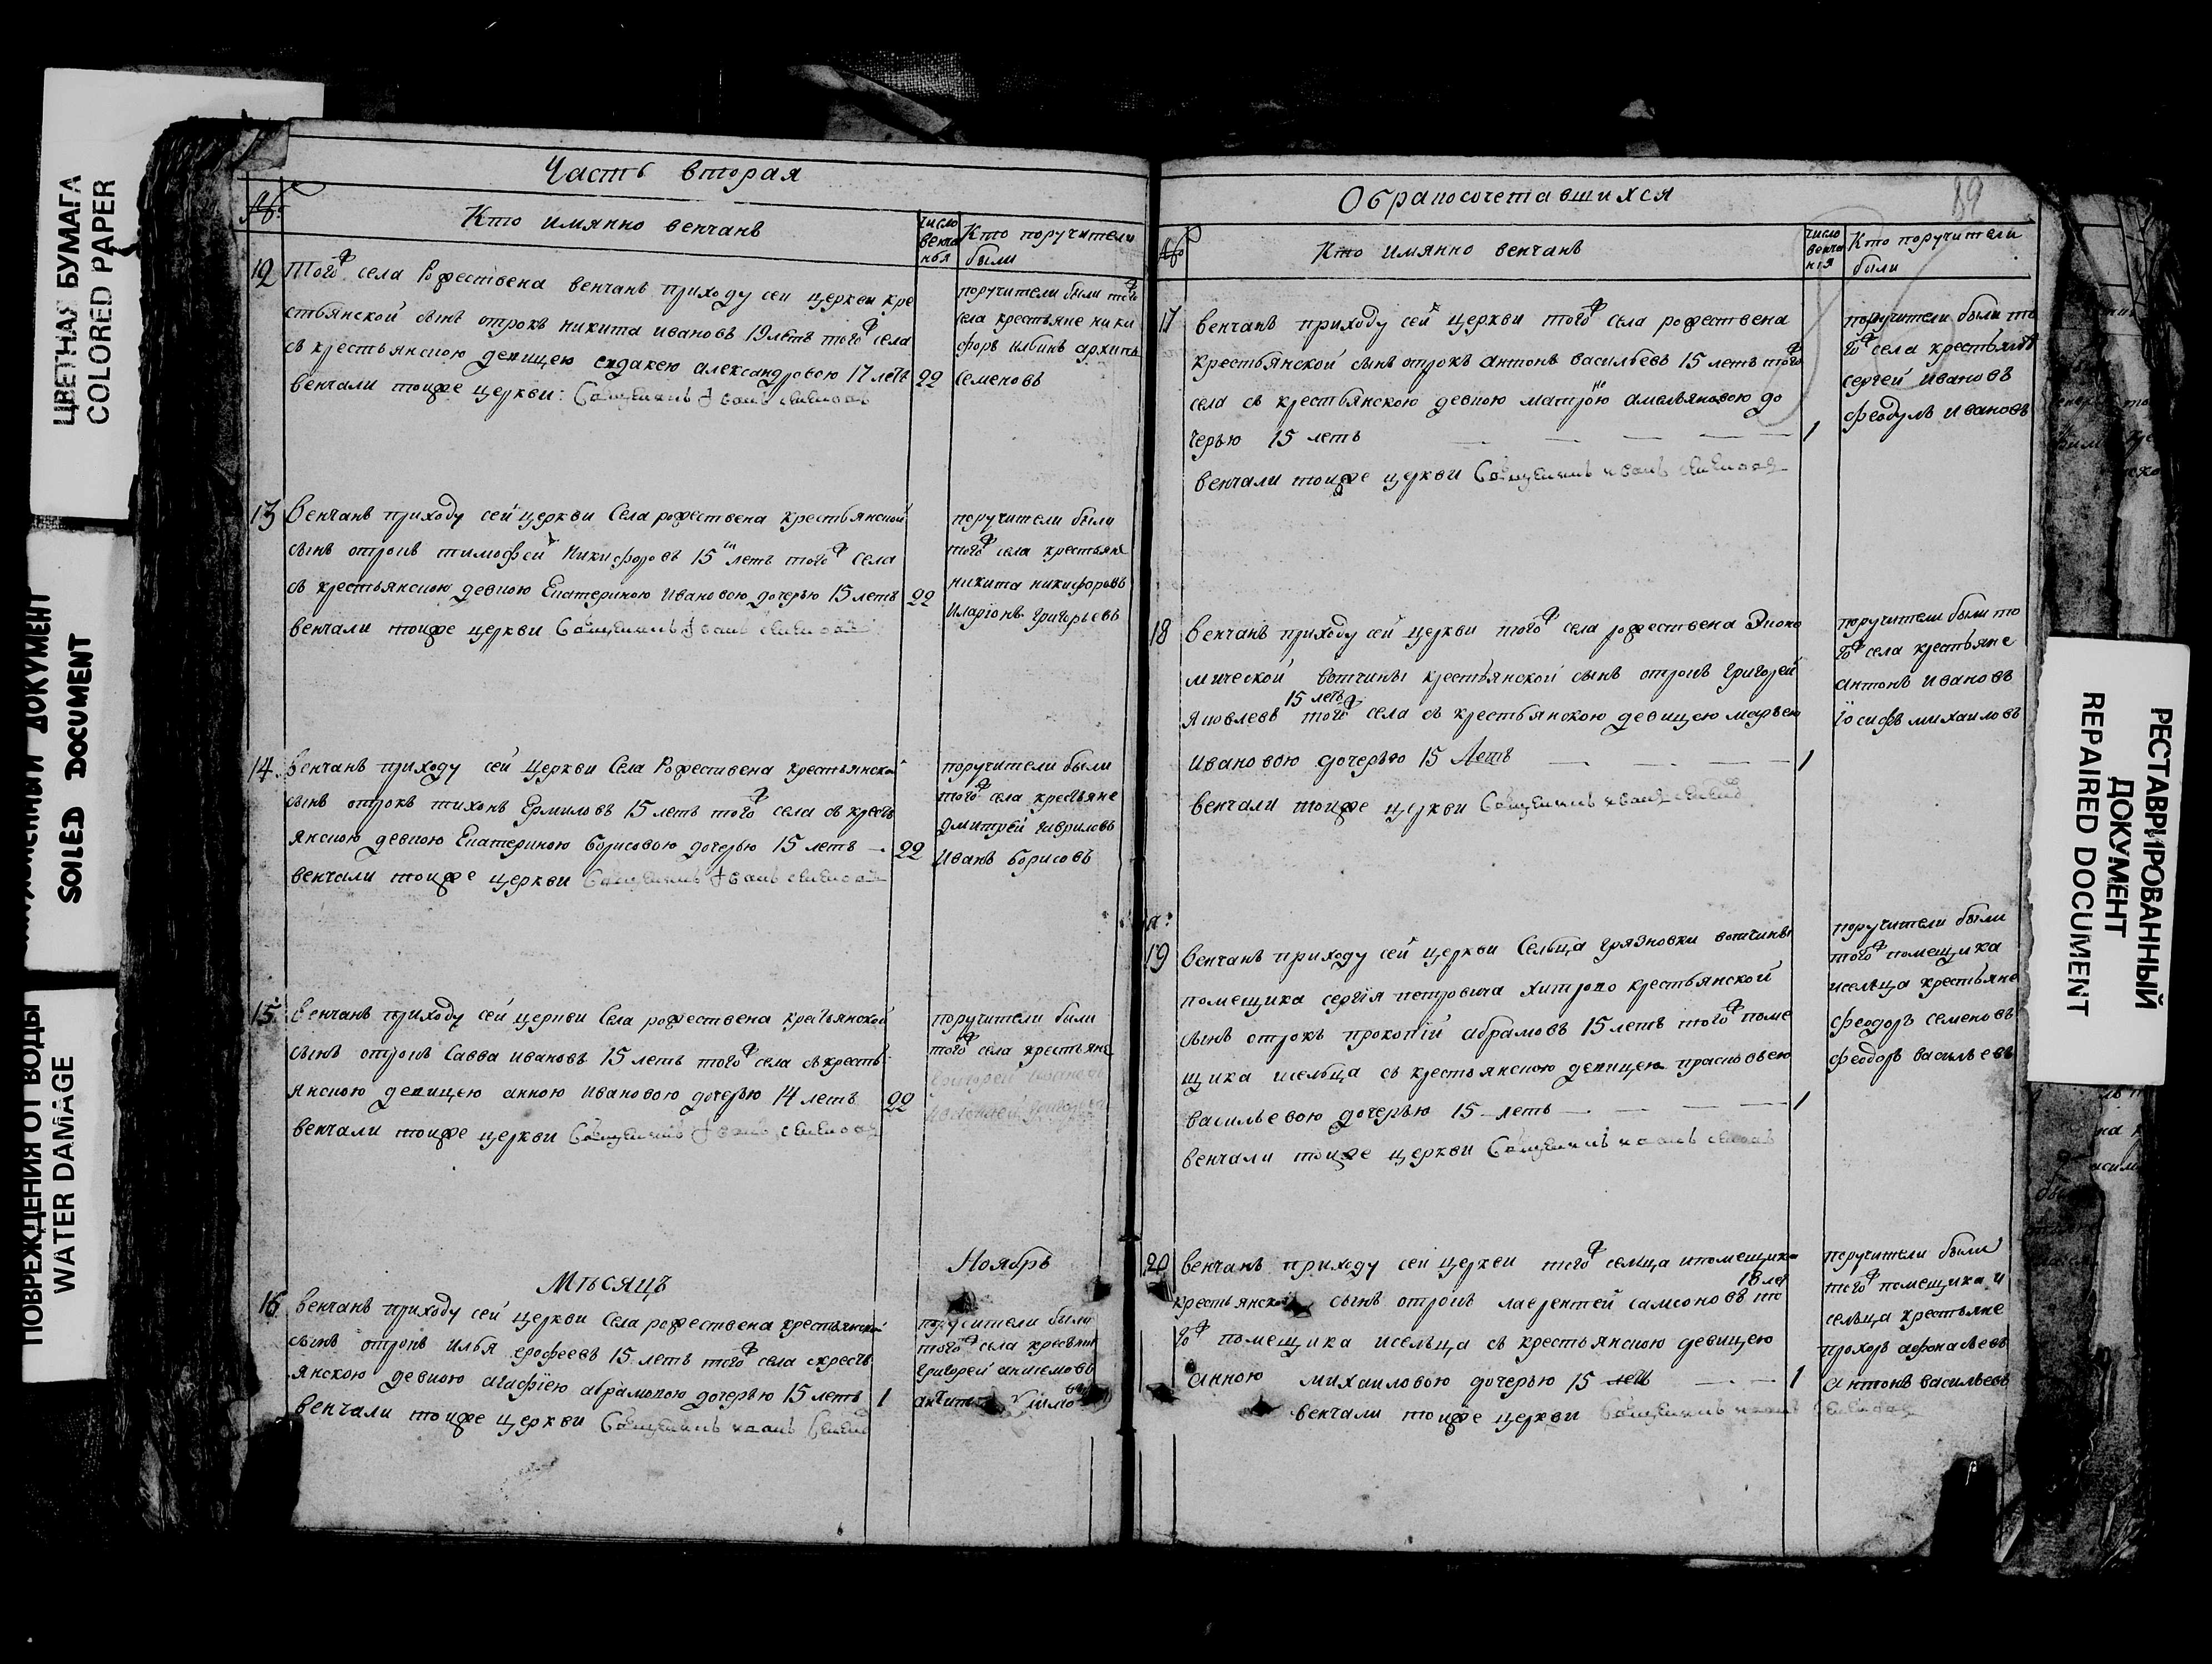 ЦВЕТНАЯ БУМАГА
COLORED PAPER
ДОКУМЕНТ
SOILED DOCUMENT
ПОВРЕЖДЕНИЯ ОТ ВОДЫ
WATER DAMAGE
Часть вторая
№
Кто имянно венчанъ
число венча нья
Кто поручители были
12 Того ж села Рожествена венчанъ приходу сей церкви кре
стьянской сынъ отрокъ никита ивановъ 19 летъ того ж села
съ крестьянскою девицею александровою 17 летъ 22
венчали тоиже церкви: Священникъ Iванъ
поручители были того ж
села крестьяне ники
форъ ильинъ архипъ
семеновъ
13 Венчанъ приходу сей церкви Села рожествена крестьянской
сынъ отрокъ тимофей Никифоровъ 15 летъ того ж села
съ крестьянскою девкою Екатериною Ивановою дочерью 15 летъ 22
венчали тоиже церкви Священникъ Iванъ
поручители были
того ж села крестьяне
никита никифоровъ
Иларiонъ григорьевъ
14 Венчанъ приходу сей Церкви Села Рожествена крестьянской
сынъ отрокъ тихонъ Ермиловъ 15 летъ того ж села съ кресть
янскою девкою Екатериною Борисовою дочерью 15 летъ 22
венчали тоиже церкви Священникъ Iванъ
поручители были
того ж села крестьяне
дмитрей гавриловъ
Иванъ Борисовъ
15 Венчанъ приходу сей церкви Села рожествена крестьянской
сынъ отрокъ Савва ивановъ 15 летъ того ж села съ кресть
янскою девицею анною Ивановою дочерью 14 летъ 22
венчали тоиже церкви Священникъ Iванъ
поручители были
того ж села крестьяне
григорей ивановъ
Мѣсяцъ Ноябрь
16 Венчанъ приходу сей церкви Села рожествена крестьянской
сынъ отрокъ илья ерофеевъ 15 летъ того ж села скресть
янскою девкою агафiею абрамовою дочерью 15 летъ 1
венчали тоиже церкви Священникъ иванъ
поручители были
того ж села крестьяне
григорей
Обрапосочетавшихся
89
№
Кто имянно венчанъ
число венча нiя
Кто поручители были
17 венчанъ приходу сей церкви того ж села рожествена
крестьянской сынъ отрокъ антонъ васильевъ 15 летъ того ж
села съ крестьянскою девкою матроною амельяновою до
черью 15 летъ 1
венчали тоиже церкви Священникъ иванъ
поручители были то
го ж села крестьяне
сергей ивановъ
феодулъ ивановъ
18 венчанъ приходу сей церкви того ж села рожествена Эконо
мической вотчины крестьянской сынъ отрокъ григорей
15 летъ
Яковлевъ того ж села съ крестьянскою девицею марьею
ивановою дочерью 15 летъ 1
венчали тоиже церкви Священникъ иванъ
поручители были то
го ж села крестьяне
антонъ ивановъ
Iосифъ михаиловъ
19 Венчанъ приходу сей церкви Сельца грязновки вотчины
помещика сергiя петровича хитрово крестьянской
сынъ отрокъ прокопiй абрамовъ 15 летъ того ж поме
щика исельца съ крестьянскою девицею прасковьею
васильевою дочерью 15 летъ 1
венчали тоиже церкви Священникъ иванъ
поручители были
того ж помещика
исельца крестьяне
феодоръ семеновъ
феодоръ васильевъ
20 венчанъ приходу сей церкви того ж сельца ипомещика
18 лет
крестьянской сынъ отрокъ лаврентей самсоновъ то
го ж помещика исельца съ крестьянскою девицею
анною михаиловою дочерью 15 летъ 1
венчали тоиже церкви Священникъ иванъ
поручители были
того ж помещика и
сельца крестьяне
прохоръ афонасьевъ
антонъ васильевъ
РЕСТАВРИРОВАННЫЙ
ДОКУМЕНТ
REPAIRED DOCUMENT